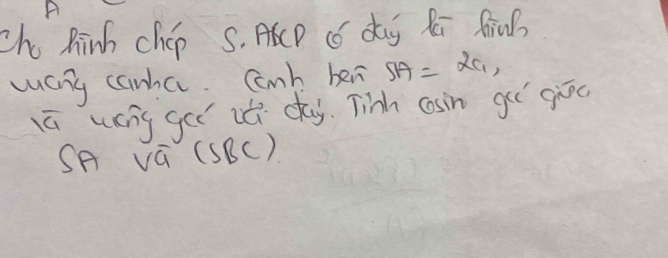 A
Cho hình chóp S.ABCD có đáy là hình
vuông cạnh a. Cạnh bên SA = 2a,
và vuông góc với đáy. Tính cosin góc giữa
SA và (SBC).